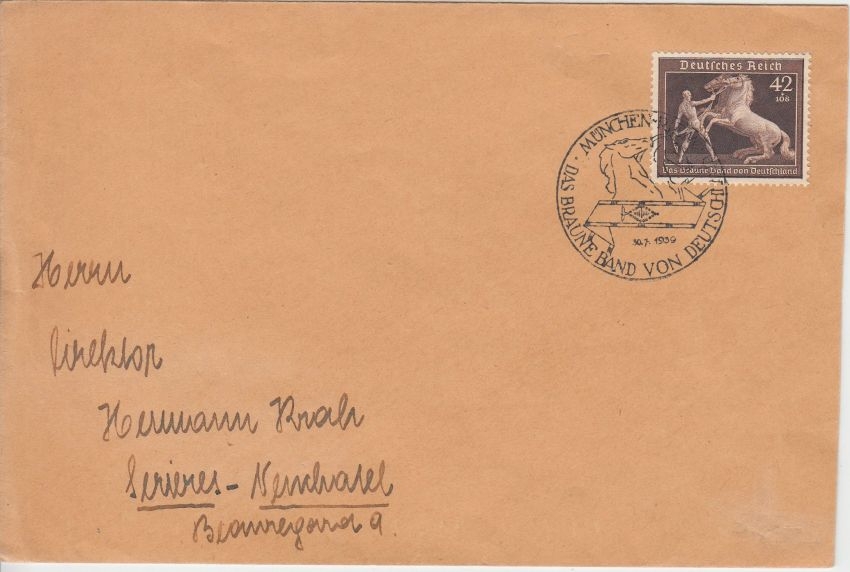 Deutsches Reich
42
+
108
Das Braune Band von Deutschland
MÜNCHEN-
· DAS BRAUNE BAND VON DEUTSCHLAND
30.7.1939
Herrn
Direktor
Hermann Krab
Serieres - Neuchatel
Beauregard 9.